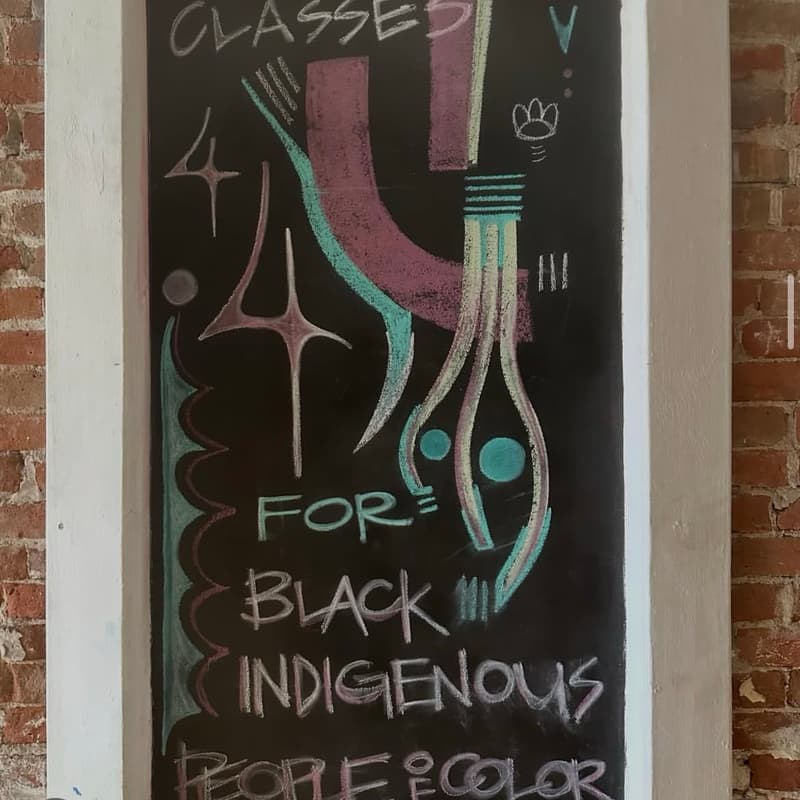 CLASSES
4
4
FOR
BLACK
INDIGENOUS
PEOPLE OF COLOR